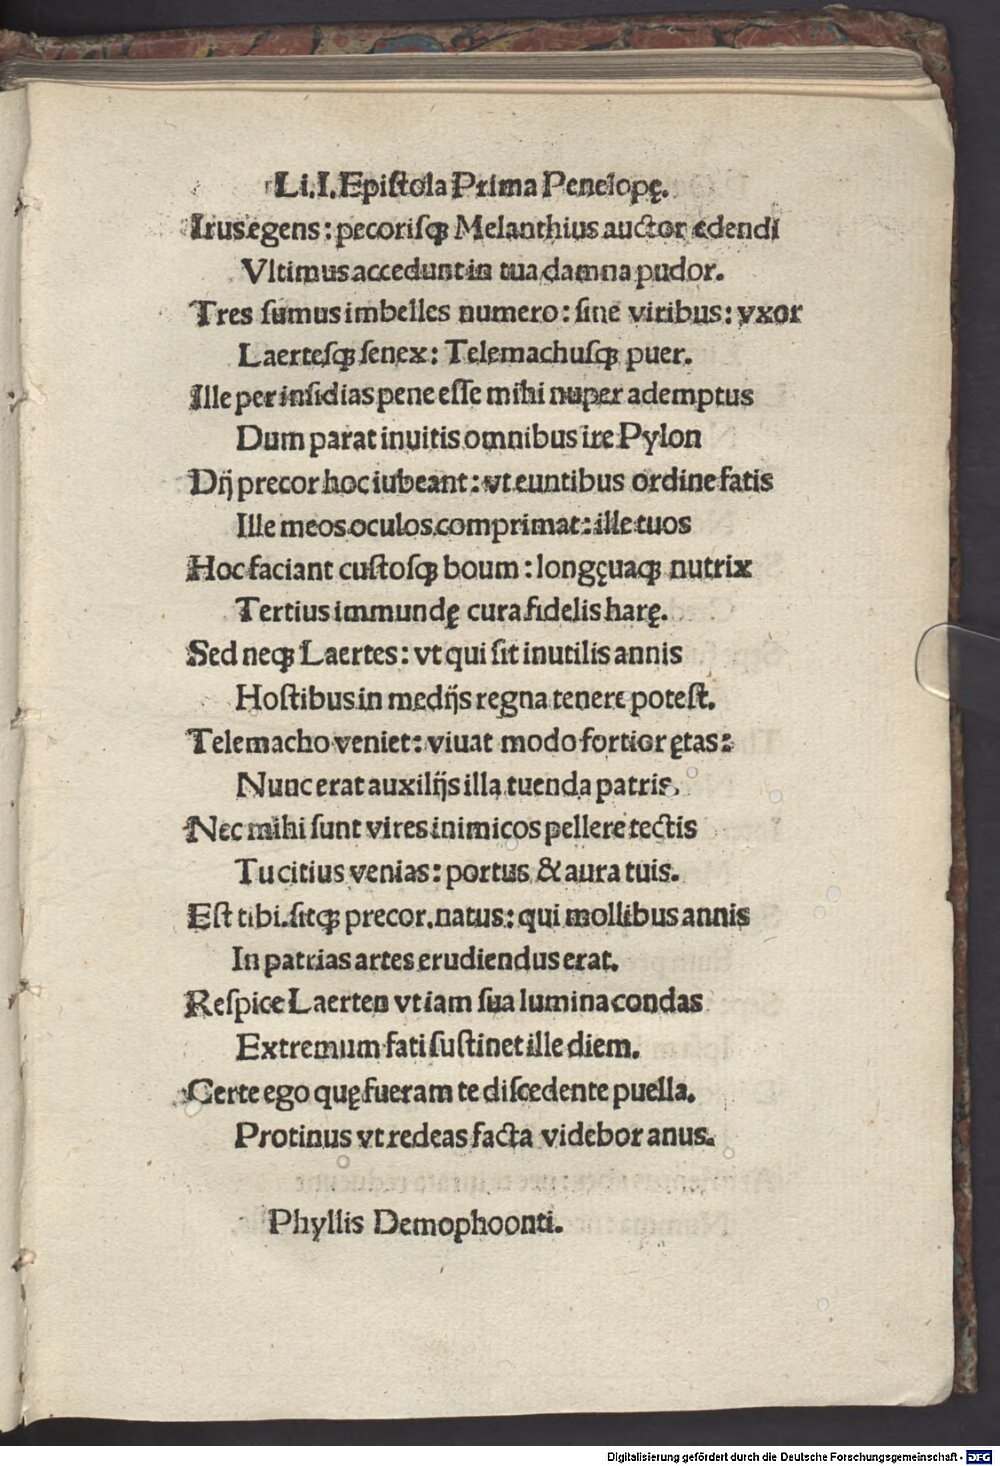 Li.I.Epiſtola Prima Penelopę.
Irus egens: pecoriſqꝫ Melanthius auctor edendi
Vltimus accedunt in tua damna pudor.
Tres ſumus imbelles numero: ſine viribus: vxor
Laerteſqꝫ ſenex: Telemachuſqꝫ puer.
Ille per inſidias pene eſſe mihi nuper ademptus
Dum parat inuitis omnibus ire Pylon
Dij precor hoc iubeant: vt euntibus ordine fatis
Ille meos oculos comprimat: ille tuos
Hoc faciant cuſtoſqꝫ boum: longęuaqꝫ nutrix
Tertius immundę cura fidelis harę.
Sed neqꝫ Laertes: vt qui ſit inutilis annis
Hoſtibus in medijs regna tenere poteſt.
Telemacho veniet: viuat modo fortior ętas:
Nunc erat auxilijs illa tuenda patris.
Nec mihi ſunt vires inimicos pellere tectis
Tu citius venias: portus & aura tuis.
Eſt tibi.ſitqꝫ precor.natus: qui mollibus annis
In patrias artes erudiendus erat.
Reſpice Laerten vt iam ſua lumina condas
Extremum fati ſuſtinet ille diem.
Certe ego quę fueram te diſcedente puella.
Protinus vt redeas facta videbor anus.
Phyllis Demophoonti.
Digitalisierung gefördert durch die Deutsche Forschungsgemeinschaft - DFG